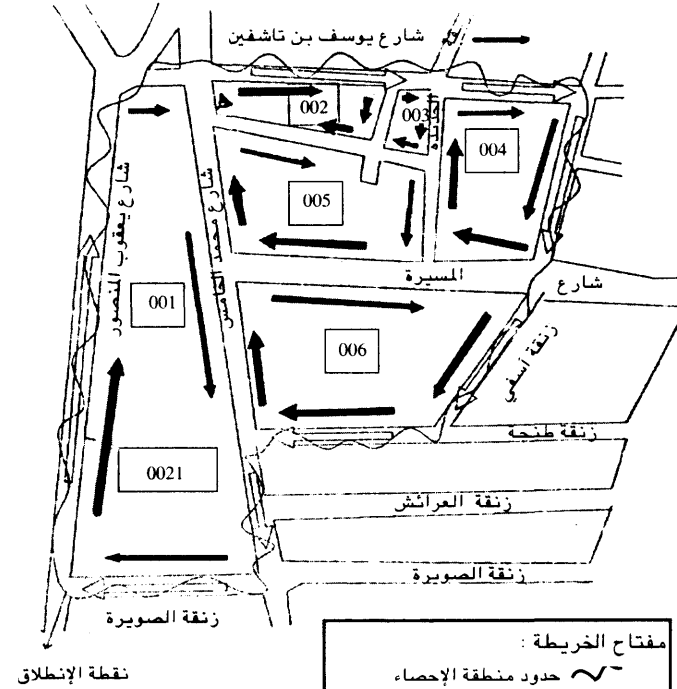 شارع يوسف بن تاشفين
002
003
الجديدة
004
005
شارع يعقوب المنصور
شارع محمد الخامس
المسيرة
شارع
001
006
زنقة آسفي
زنقة طنجة
0021
زنقة العرائش
زنقة الصويرة
زنقة الصويرة
نقطة الإنطلاق
مفتاح الخريطة :
حدود منطقة الإحصاء